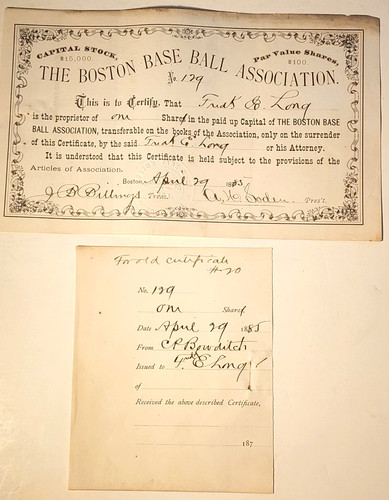 CAPITAL STOCK, $15,000
Par Value Shares, $100
THE BOSTON BASE BALL ASSOCIATION.
No. 129
This is to Certify, That Fred E. Long
is the proprietor of one Share in the paid up Capital of THE BOSTON BASE
BALL ASSOCIATION, transferable on the books of the Association, only on the surrender
of this Certificate, by the said Fred E Long or his Attorney.
It is understood that this Certificate is held subject to the provisions of the
Articles of Association.
Boston, April 29 1885
J B Billings Treas. A. H. Soden Pres't.
For old certificate
# 20
No. 129
one Share
Date April 29 1885
From C P Bowditch
Issued to F. E Long
of
Received the above described Certificate,
187